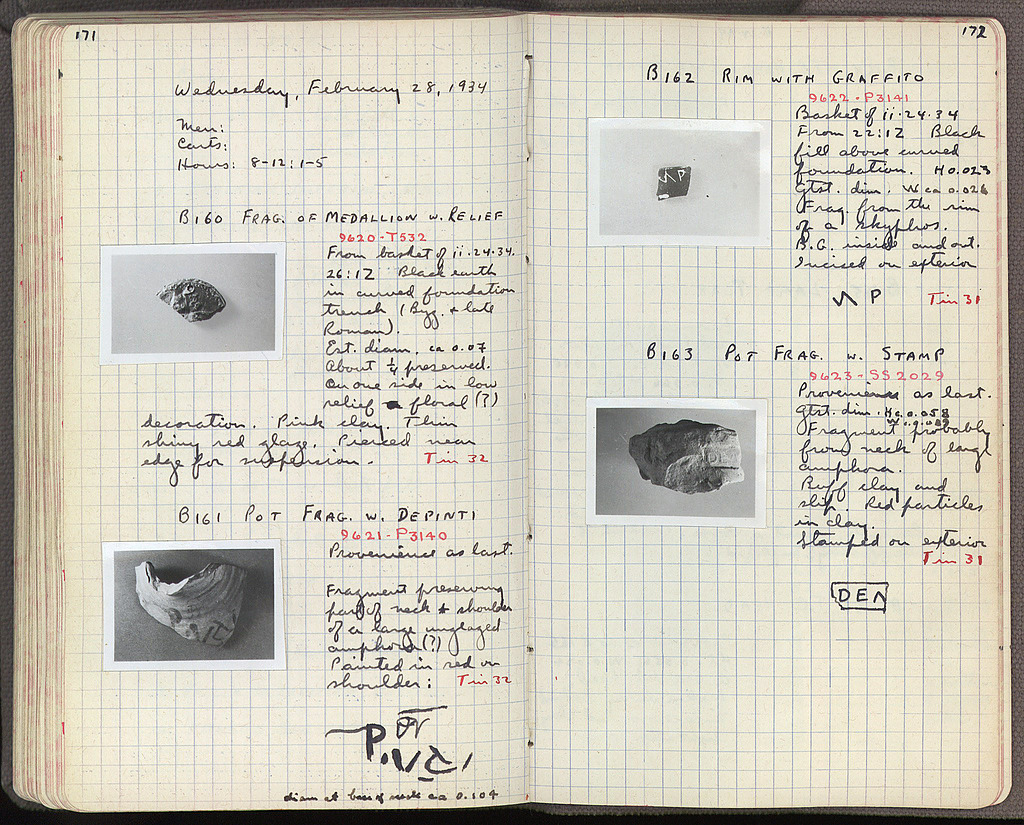 171
Wednesday, February 28, 1934
Men:
Carts:
Hours: 8-12:1-5
B160 FRAG. OF MEDALLION W. RELIEF
9620-T532
From basket of ii.24.34.
26:IZ Black earth
in curved foundation
trench (Byz. + late
Roman).
Est. diam. ca 0.07
About ¼ preserved.
On one side in low
relief floral (?)
decoration. Pink clay. Thin
shiny red glaze. Pierced near
edge for suspension.
Tin 32
B161 POT FRAG. W. DEPINTI
9621-P3140
Provenience as last.
Fragment preserving
part of neck + shoulder
of a large unglazed
amphora (?)
Painted in red on
shoulder: Tin 32
diam at base of neck ca 0.104
172
B162 RIM WITH GRAFFITO
9622-P3141
Basket of ii.24.34
From 22:IZ Black
fill above curved
foundation. H 0.023
Gtst. dim. W ca 0.026
Frag. from the rim
of a skyphos.
B.G. inside and out.
Incised on exterior
Tin 31
B163 POT FRAG. W. STAMP
9623-SS2029
Provenience as last.
Gtst. dim. H 0.058
Fragment probably
from neck of large
amphora.
Buff clay and
slip. Red particles
in clay.
Stamped on exterior
Tin 31
DEΛ